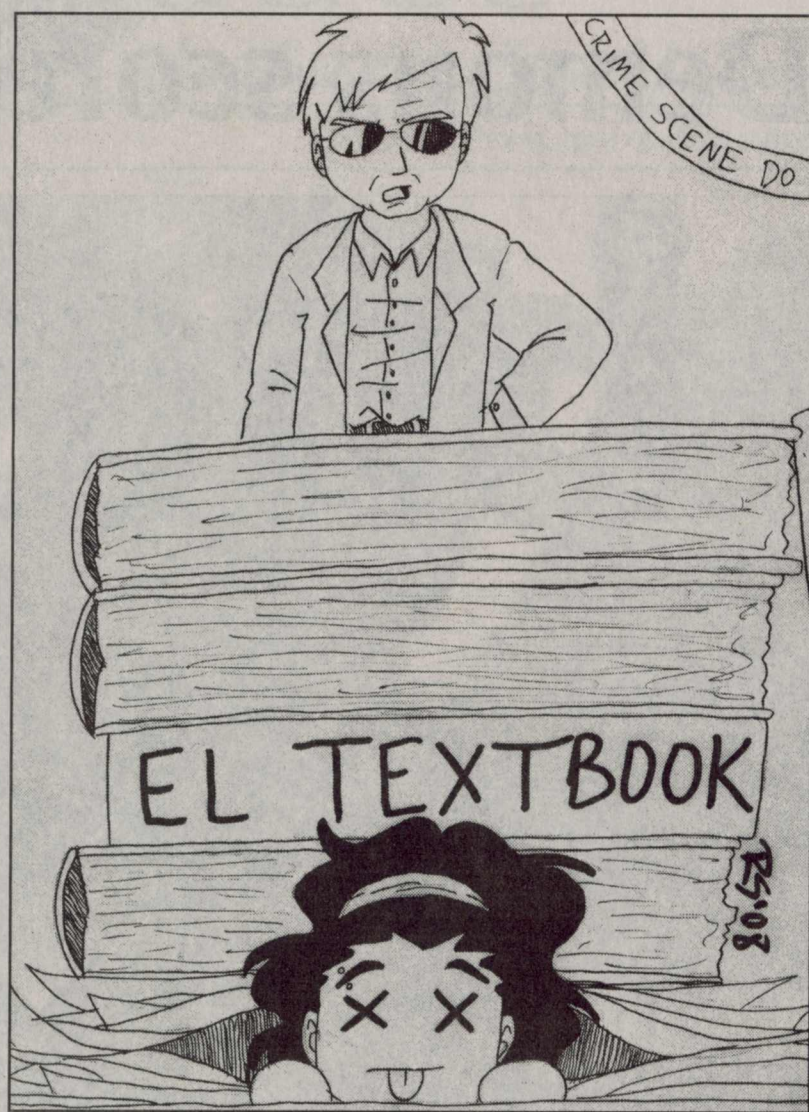 CRIME SCENE DO
EL TEXTBOOK